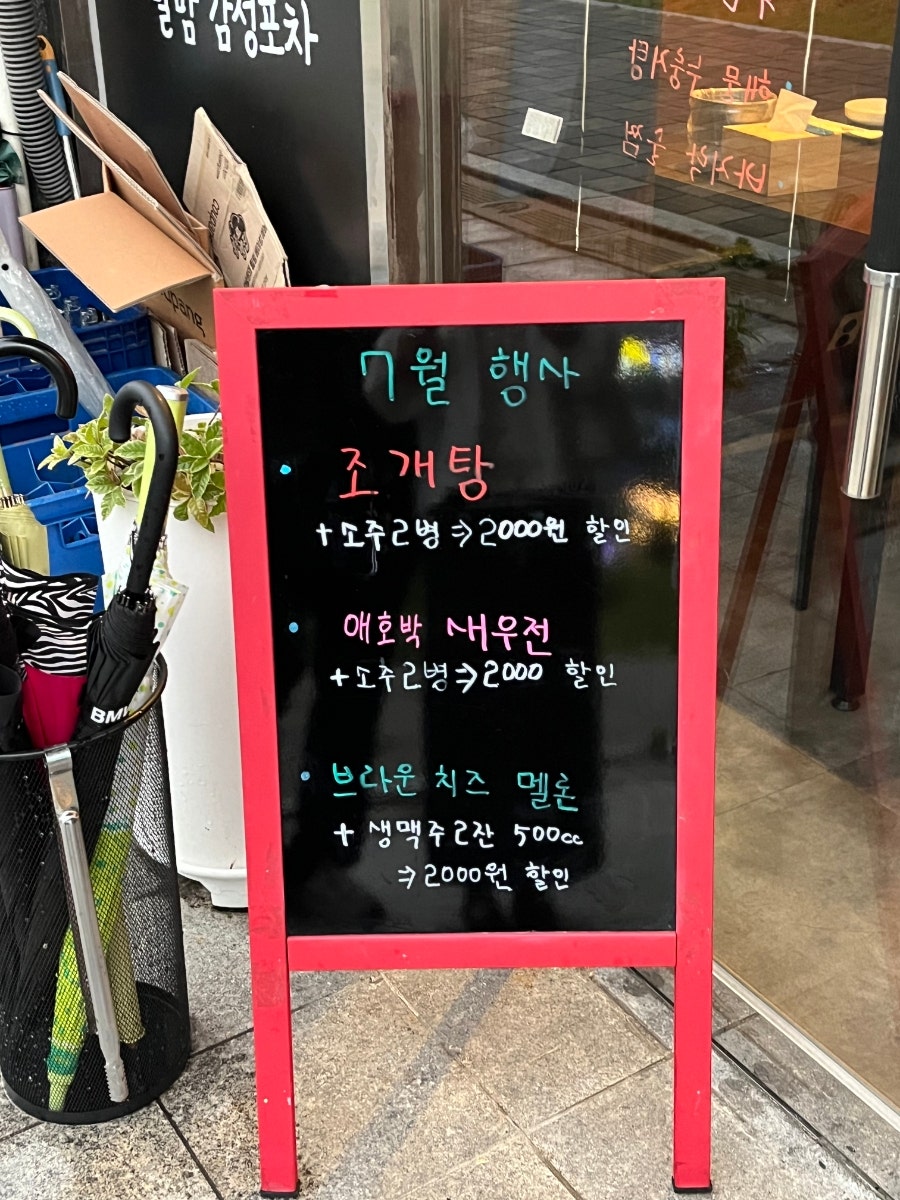 감성포차
해물 누룽지탕
바지락 술찜
coupang
7월 행사
• 조개탕
+ 소주2병 ⇒ 2000원 할인
• 애호박 새우전
+ 소주2병 ⇒ 2000 할인
• 브라운 치즈 멜론
+ 생맥주2잔 500cc
⇒ 2000원 할인
BMW